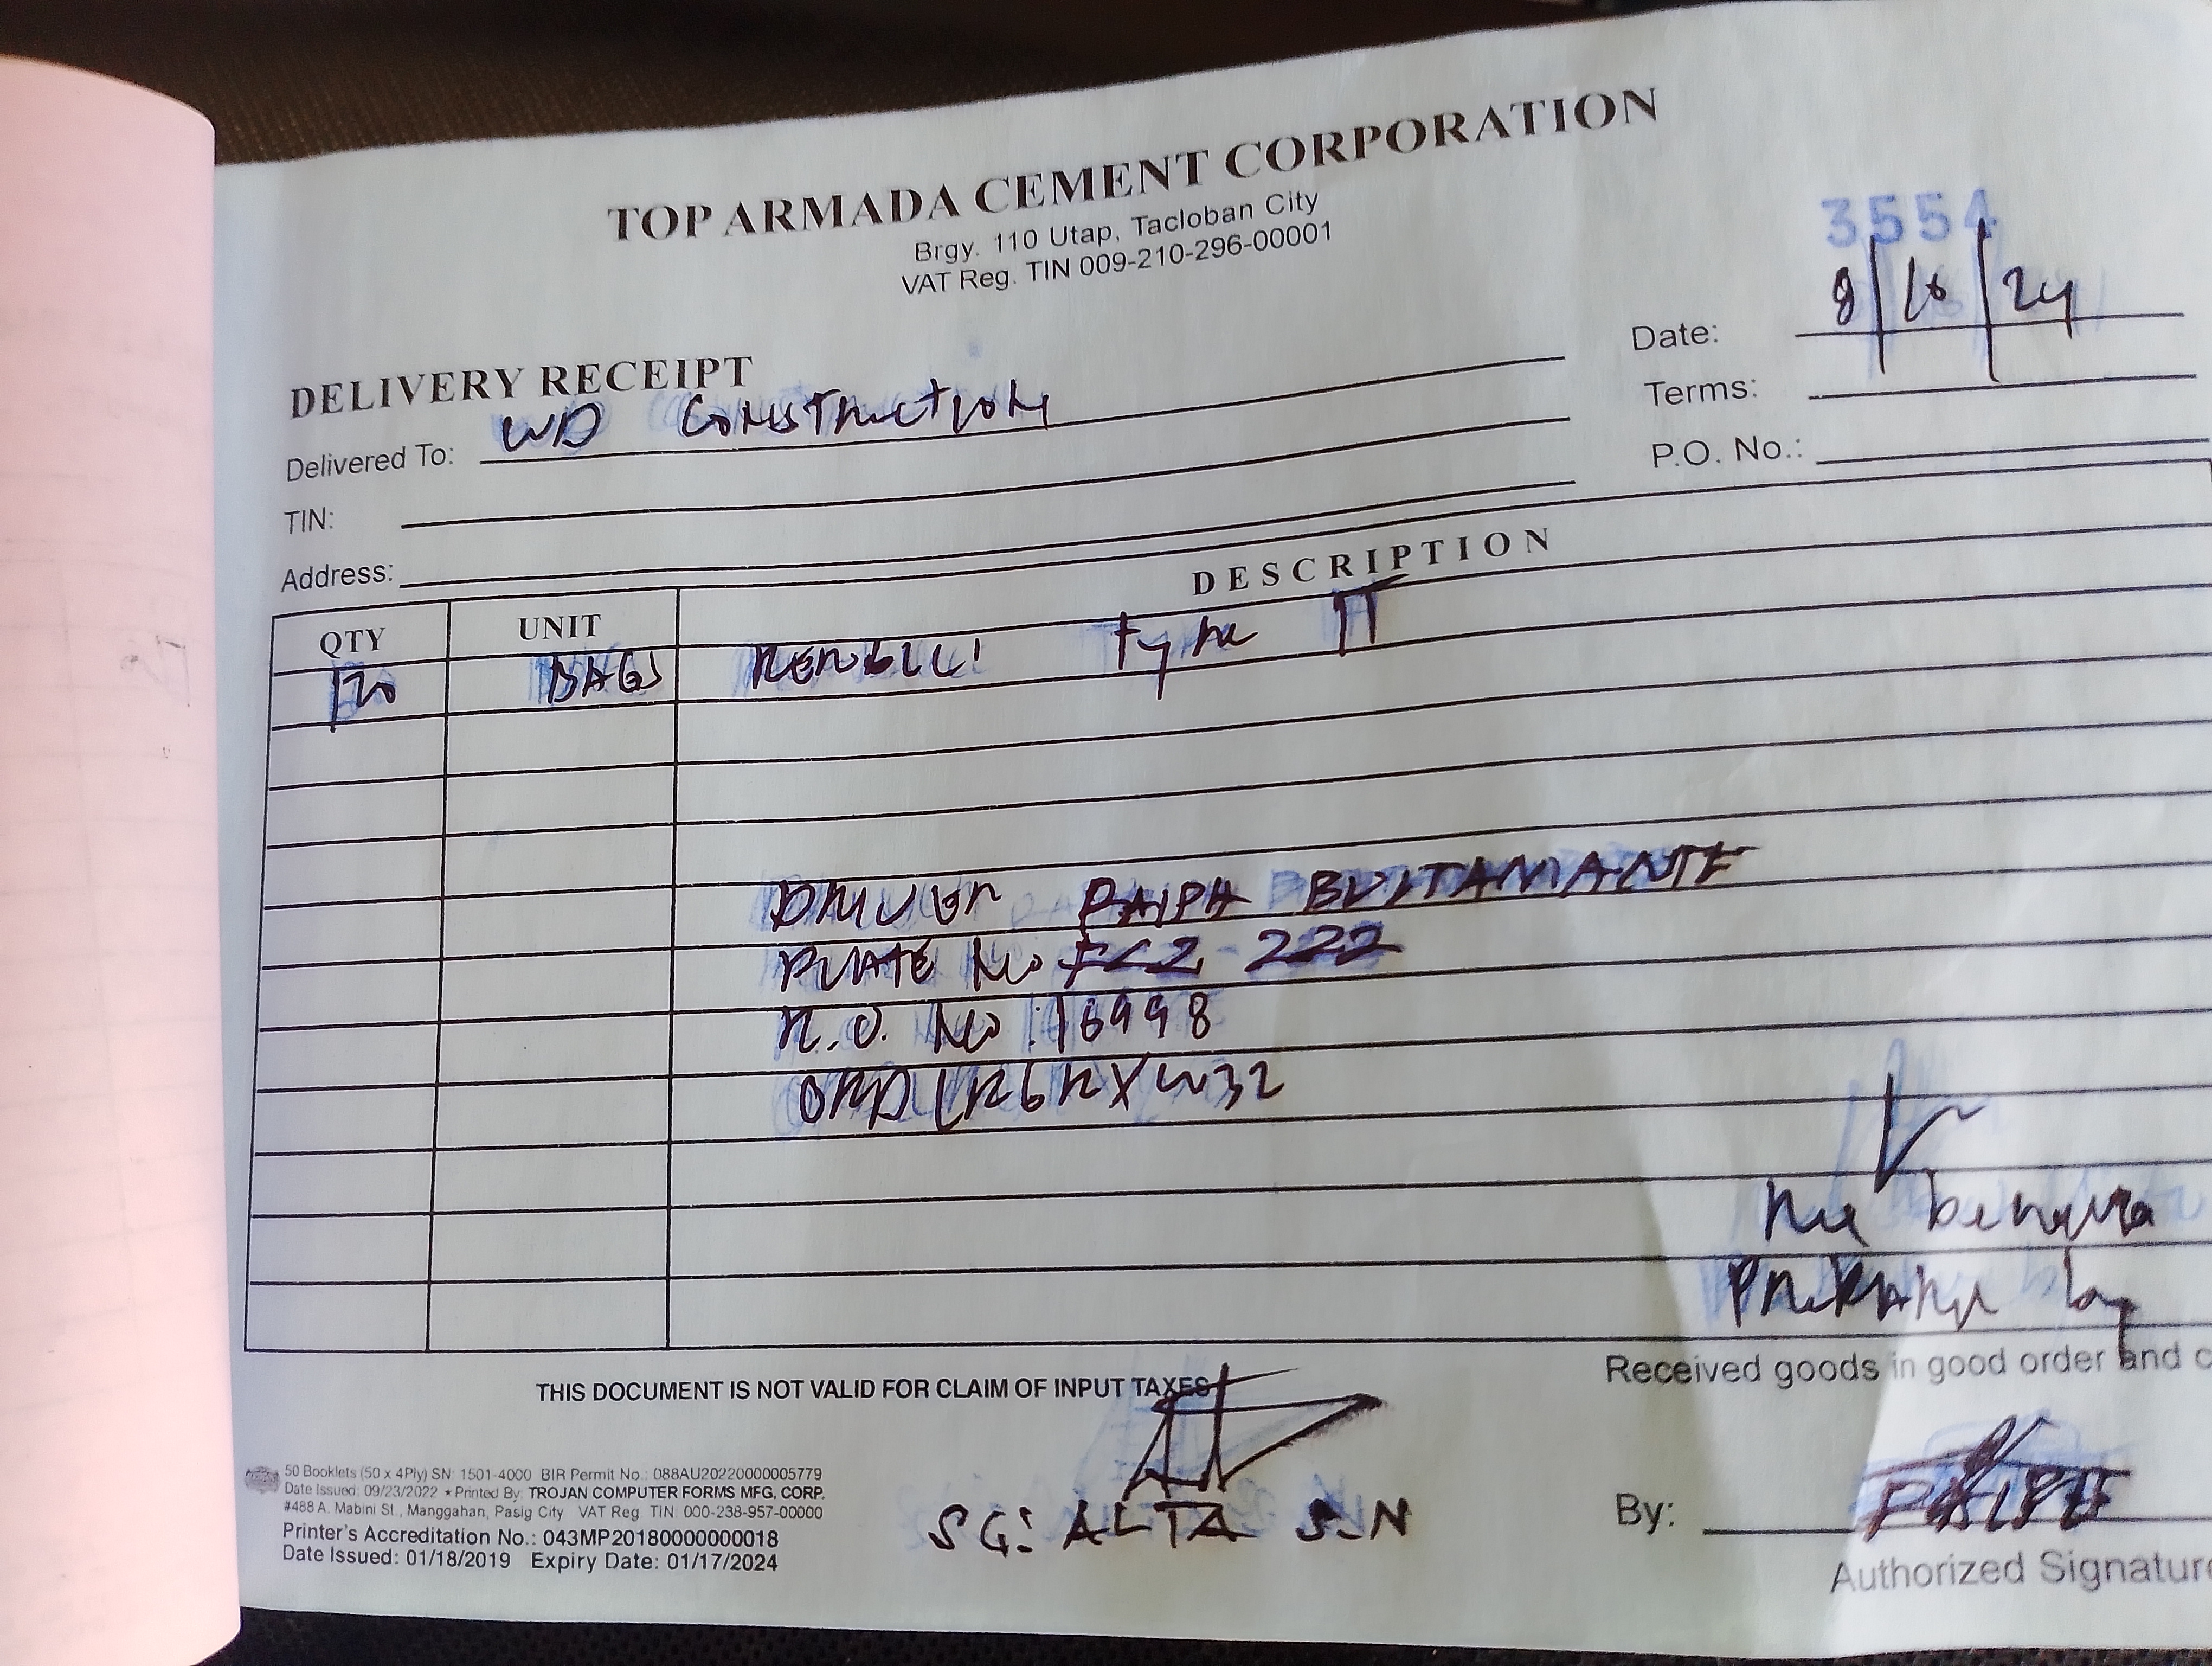 TOP ARMADA CEMENT CORPORATION
Brgy. 110 Utap, Tacloban City
VAT Reg. TIN 009-210-296-00001
3554
DELIVERY RECEIPT
Date: 8/16/24
Delivered To: WD Construction
Terms:
TIN:
P.O. No.:
Address:
QTY UNIT DESCRIPTION
120 BAGS Type II
DRIVER RALPH BUSTAMANTE
PLATE No 222
No. 16998
Prepared by
Received goods in good order and c
THIS DOCUMENT IS NOT VALID FOR CLAIM OF INPUT TAXES
50 Booklets (50 x 4Ply) SN: 1501-4000 BIR Permit No.: 088AU20220000005779
Date Issued: 09/23/2022 ★ Printed By: TROJAN COMPUTER FORMS MFG. CORP.
#488 A. Mabini St., Manggahan, Pasig City VAT Reg. TIN: 000-238-957-00000
Printer's Accreditation No.: 043MP20180000000018
Date Issued: 01/18/2019 Expiry Date: 01/17/2024
SG: ALTA S.N
By: RALPH
Authorized Signature